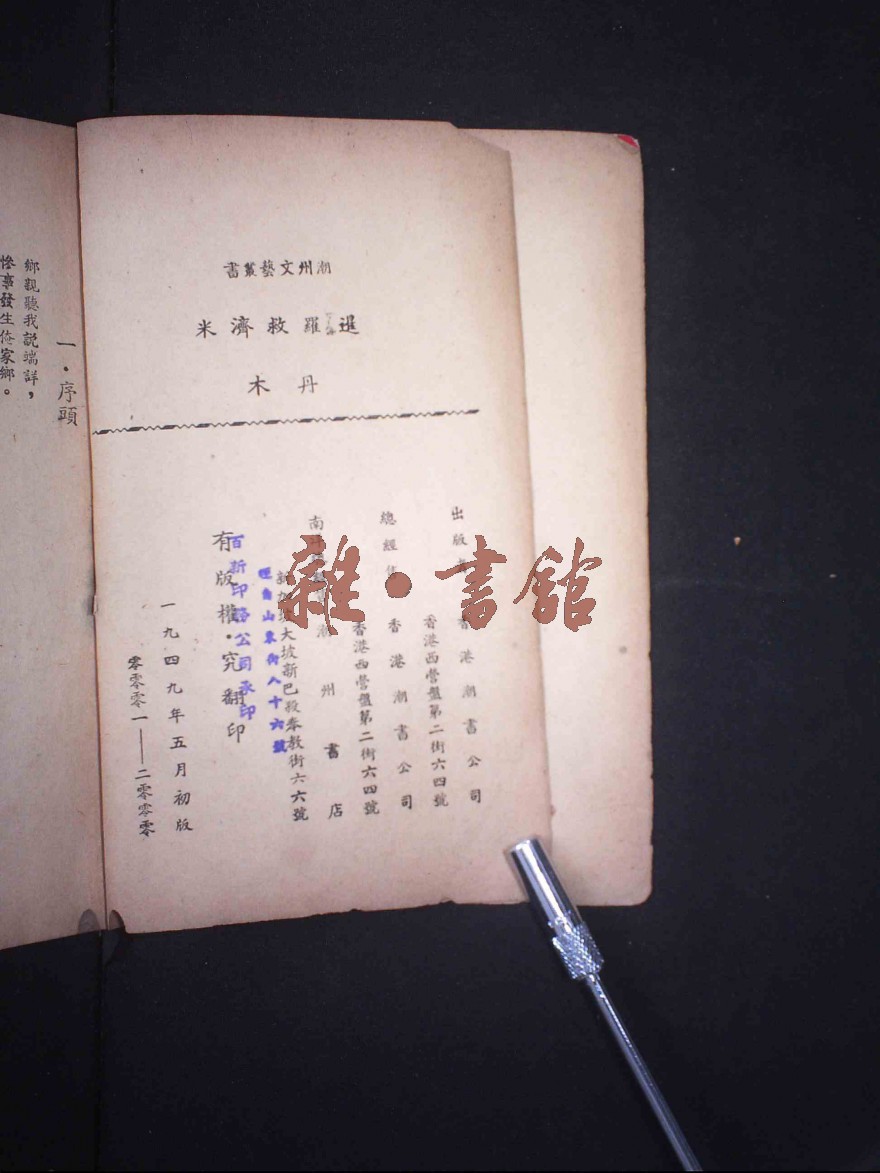 潮州文藝叢書
暹羅救濟米
丹木
出版者 香港潮書公司
香港西營盤第二街六四號
總經售 香港潮書公司
香港西營盤第二街六四號
南洋 潮州書店
新加坡大坡新巴殺奉教街六六號
有版權・究翻印
一九四九年五月初版
零零零一——二零零零
百新印務公司承印
山東街八十六號
雜・書館
一・序頭
鄉親聽我説端詳，
慘事發生俺家鄉。